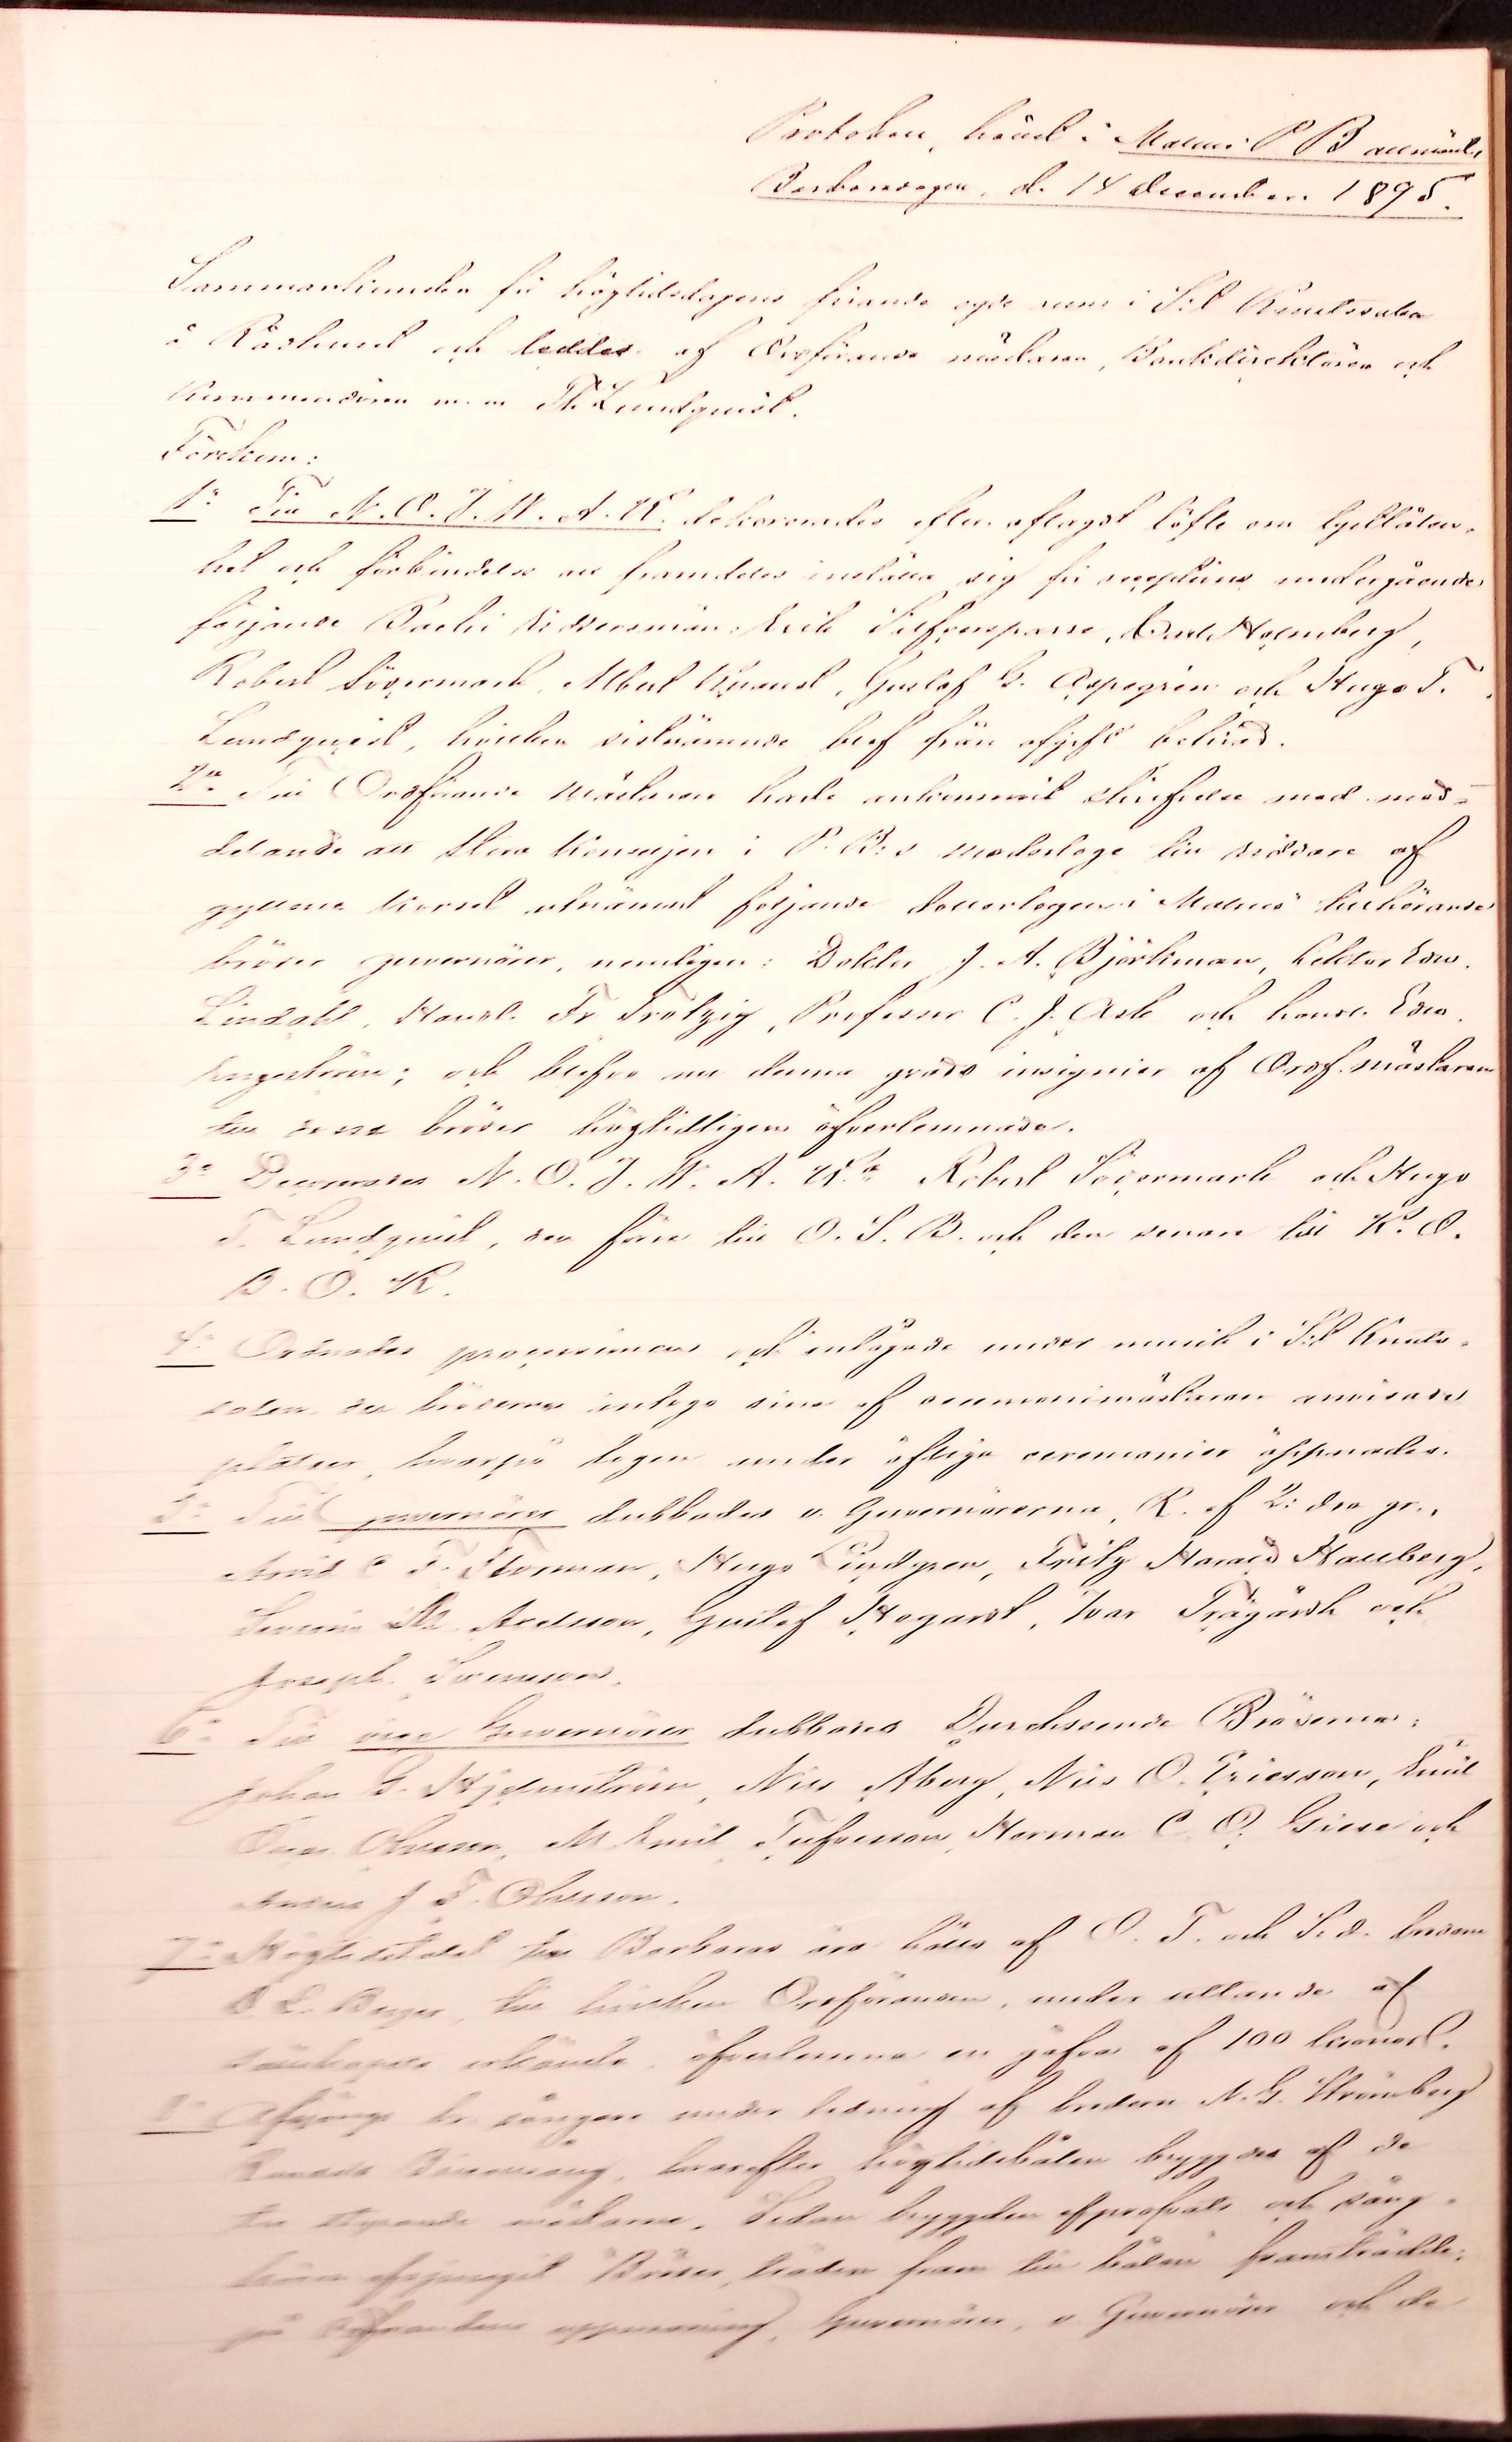 Protokoll, hållet i Malmö P B allmänna
Barbaradagen d. 14 december 1895.
Sammankomsten för högtidsdagens firande egde rum i S:t Knutssalen
å Rådhuset och leddes af Ordförande mästaren, Bankdirektören och
Kommendören m. m Th. Lundquist.
Förekom:
1o Till N. O. J. W. A. R. dekorerades efter aflagdt löfte om
och förbindelse att framdeles inställa sig för receptions undergående
följande Bacchi Riddersmän: Erik Silfversparre, Carl Holmberg,
Robert Södermark, Albert Gustaf G. Aspegren och Hugo T.
Lundquist, hvilken sistnämnde blef från afgift befriad.
2o Till Ordförande mästaren hade ankommit skrifvelse med med-
delande att Stora Konseljen i P. B:s moderloge till riddare af
gyllene korset utnämnt följande dotterlogen i Malmö tillhörande
bröder guvernörer, nemligen: Doktor J. A. Björkman, Lektor Edw.
Lindahl, Handl. Fr Trotzig, Professor C. J. Ask och handl. Edw.
Engeström; och blefvo nu denna grads insignier af Ordf. mästaren
till dessa bröder högtidligen öfverlemnade.
3o Decorerades N. O. J. W. A. R. Robert Södermark och Hugo
T. Lundquist, den förre till O. S. B. och den senare till K. O.
B. O. R.
4o Ordnades processionen och intågade under musik i S:t Knuts-
salen der bröderne intogo sina af ceremonimästaren anvisade
platser, hvarpå logen under öfliga ceremonier öppnades.
5o Till guvernörer dubbades v. Guvernörerna, R. af 2:dra gr.,
Arvid C F. Florman, Hugo Lindgren, Fritz Harald Hallberg,
Axelsson, Gustaf Hagardt, Ivar Trägårdh och
Joseph Svensson.
6o Till vice Guvernörer dubbades Bröderna:
Johan G. Hjelmström, Nils Åberg, Nils O. Ericsson, Emil
M. Emil Tufvesson, Herman C. O. Giese och
J F. Ohlsson.
7o Högtidstalet till Barbaras ära hölls af O. T. och brodern
L. Berger, till hvilken Ordföranden, under uttalande af
sällskapets öfverlemna en gåfva af 100 kronor.
8o Afsjöngo br. sångare under ledning af brodern N. G. Strömberg
hvarefter högtidsbålen bryggdes af de
tre styrande mästarne. Sedan bryggden afprofvats och sång-
kören afsjungit "Bröder, träden fram till bålen" framträdde,
på Ordförandens uppmaning, Guvernörer, v. Guvernörer och de